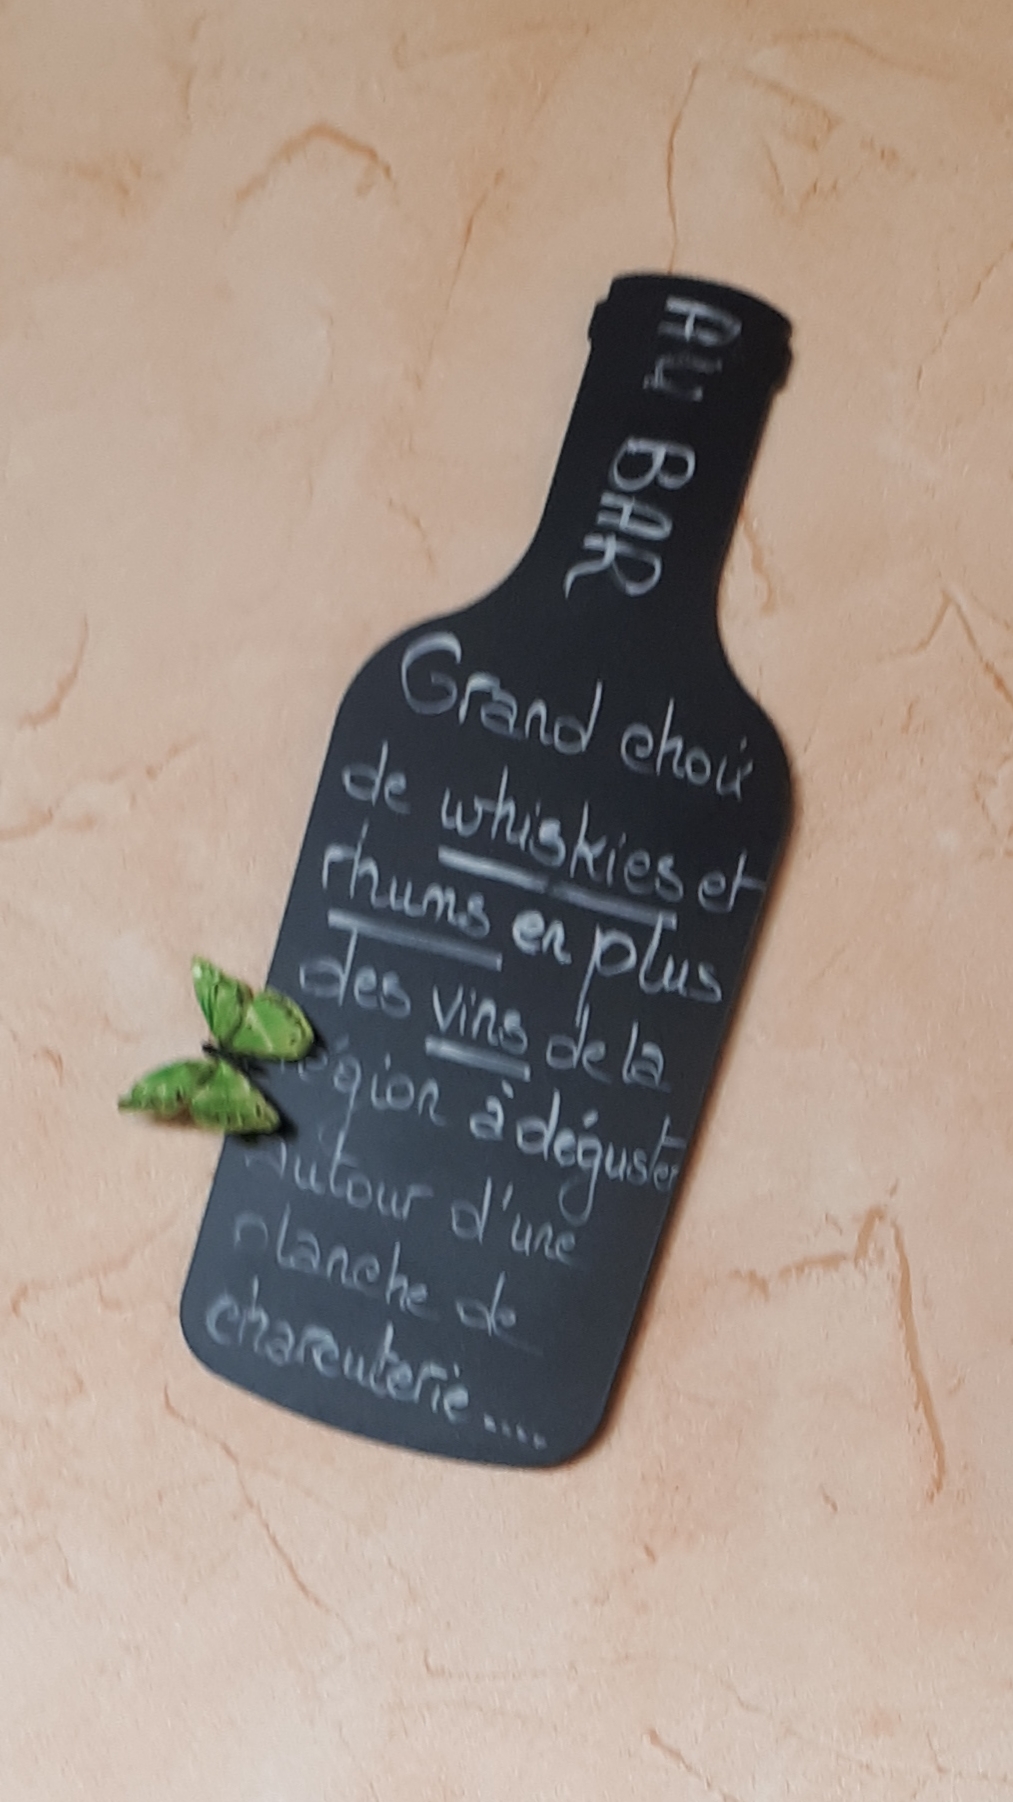 AU BAR
Grand choix
de whiskies et
rhums en plus
des vins de la
région à déguster
autour d'une
planche de
charcuterie....